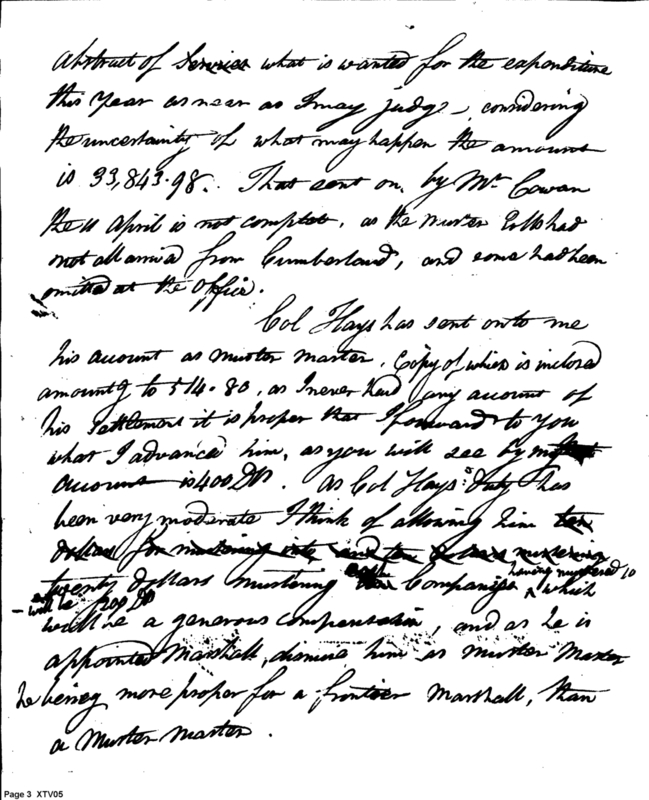 abstract of Services what is wanted for the expenditure
this Year as near as I may judge, considering
the uncertainty of what may happen the amount
is 33,843.98. That sent on, by Mr Cowan
the 11 April is not complet, as the Muster Rolls had
not all arrived from Cumberland, and some had been
omitted at the Office.
Col Hays has sent on to me
his account as Muster Master, Copy of which is inclosed
amountg to 514.80, as I never had any account of
his Settlement it is proper that I forward to you
what I advanced him, as you will see by my
account is 400 Drs. As Col Hays's duty has
been very moderate I think of allowing him ten
dollars for mustering into and ten dollars mustering
twenty dollars mustering each Companys having mustered 10 which
- will be 200 Drs
will be a generous compensation, and as he is
appointed Marshall, dismiss him as Muster Master
he being more proper for a frontier Marshall, than
a Muster Master.
Page 3 XTV05